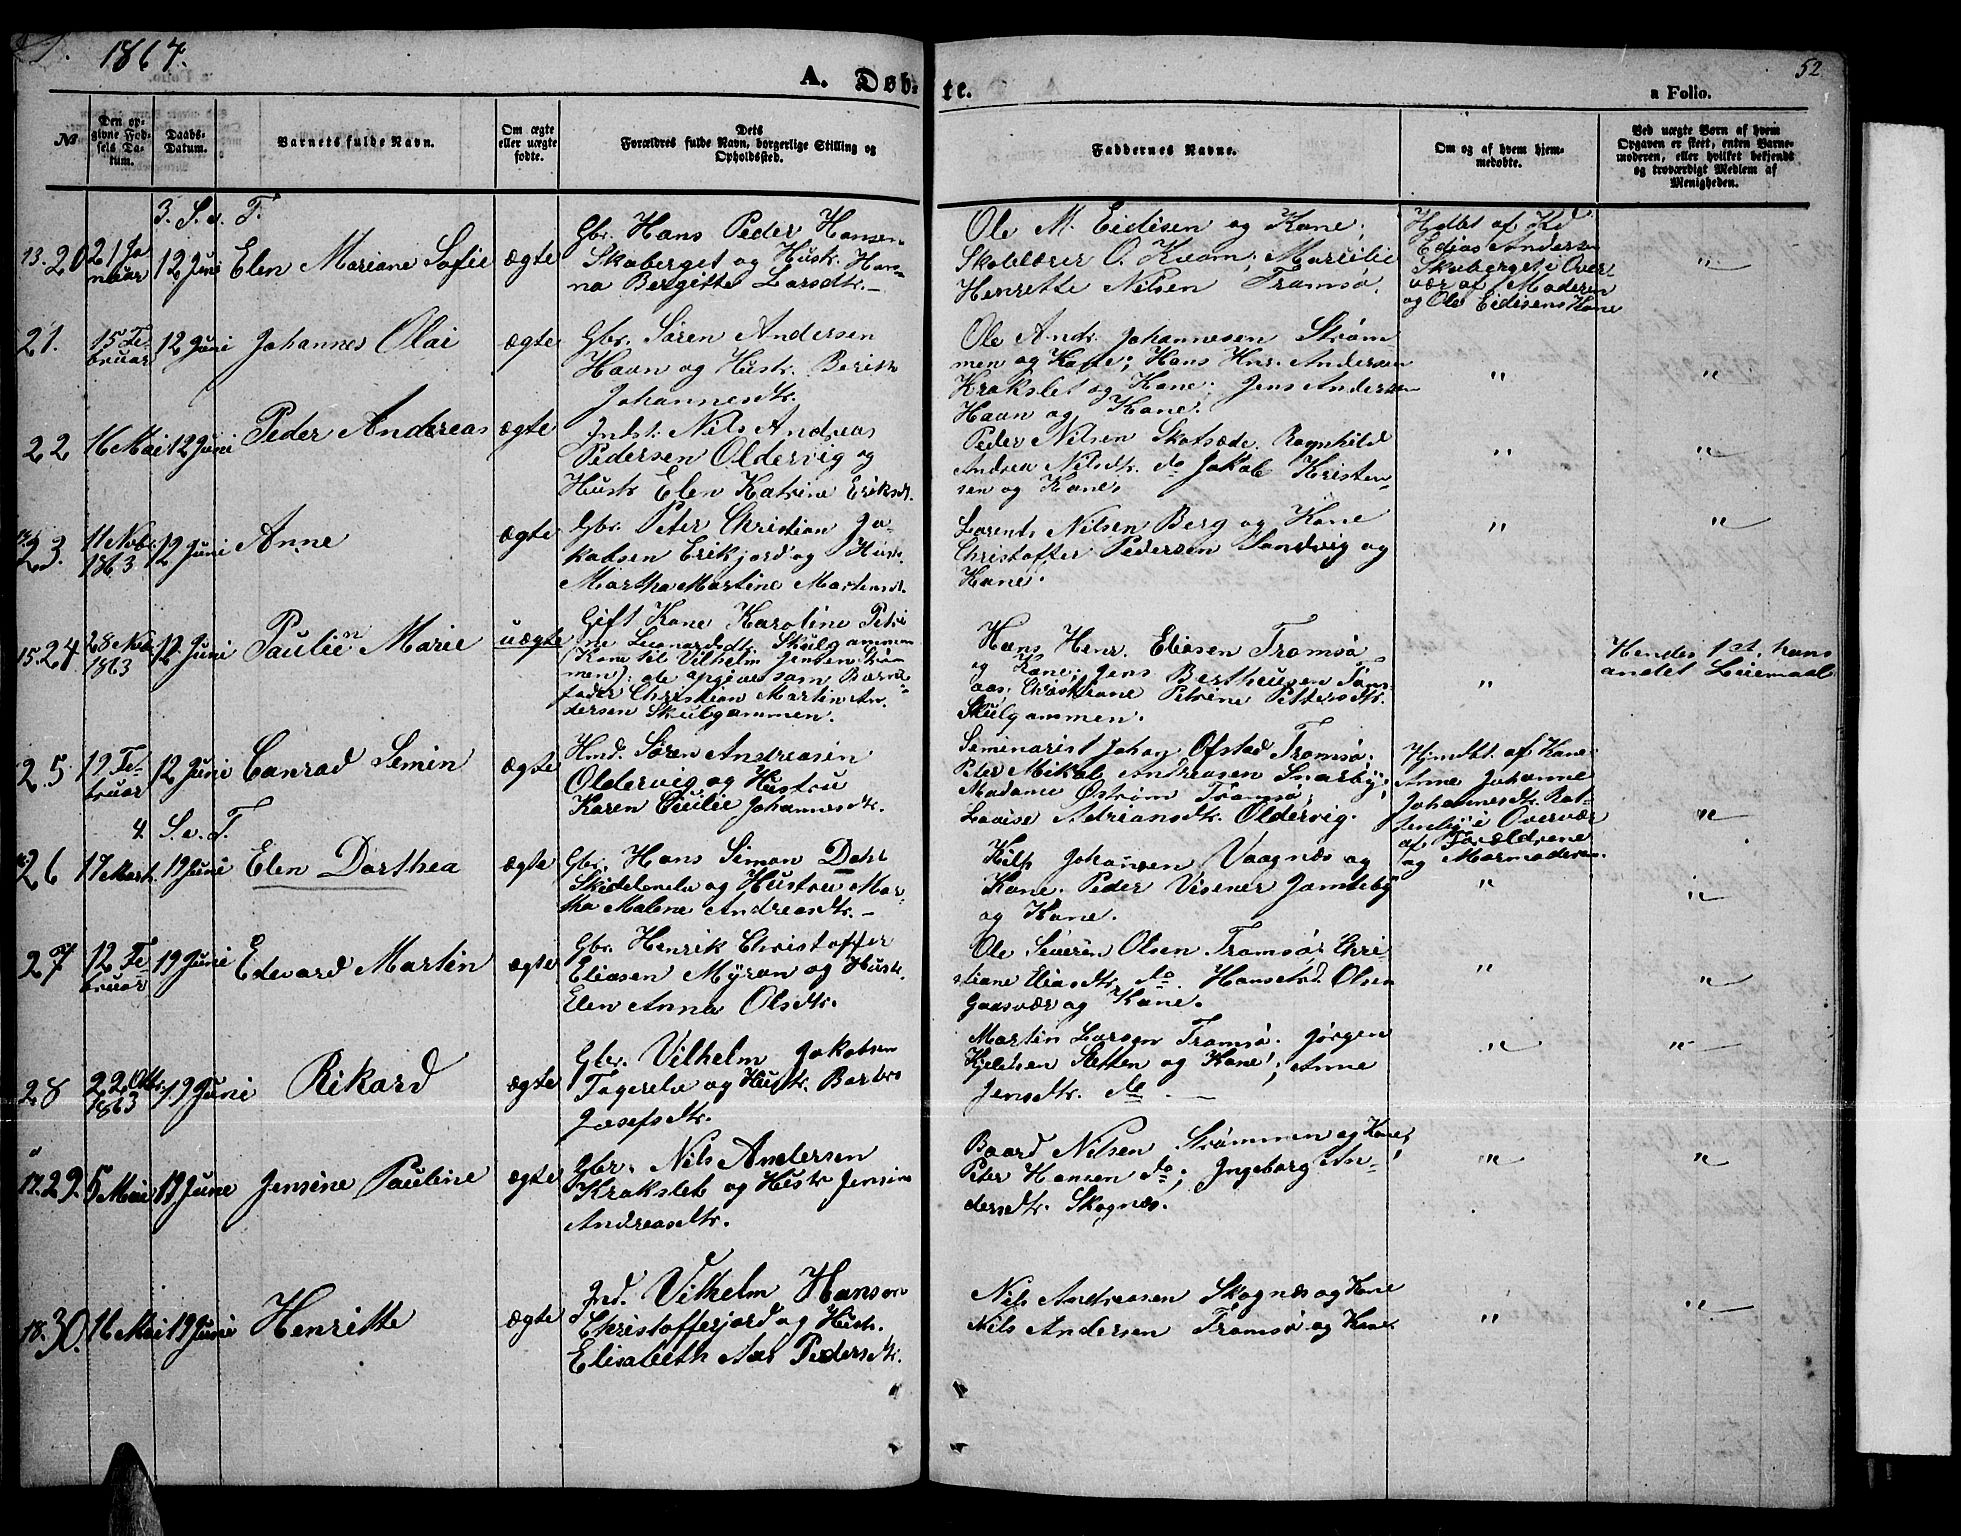 1864.
A. Døb-
te.
52
a Folio.
№
Den op-
givne Fød-
sels Da-
tum.
Daabs-
Datum.
Barnets fulde Navn.
Om ægte
eller uægte
fødte.
Dets
Forældres fulde Navn, borgerlige Stilling og
Opholdssted.
Faddernes Navne.
Om og af hvem hjem-
medøbte.
Ved uægte Børn af hvem
Opgaven er skeet, enten Barne-
moderen, eller hvilket bekjendt
og troværdigt Medlem af
Menigheden.
3. S. e. T.
13. 20
21 Ja-
nuar
12 Juni
Elen Mariane Sofie
ægte
Gbr. Hans Peder Hansen
Skaberget og Hustr. Han-
na Bergitte Larsdtr.
Ole M. Eidisen og Kone;
Skolelærer O. Kvam; Marcilie
Henrette Nilsen Tromsø.
Hjdbt af Kd
Edias Anders
Skaberget i Over-
vær af Moderen
og Ole Eidisens Kone
"
21.
15 Fe-
bruar
12 Juni
Johannes Olai
ægte
Gbr. Søren Andersen
Havn og Hustr. Berith
Johannesdtr.
Ole Andr. Johannesen Strøm-
men og Kone; Hans Hnr. Andersen
Krokslet og Kone. Jens Andersen
Havn og Kone.
"
"
22
16 Mai
12 Juni
Peder Andreas
ægte
Indst. Nils Andreas
Pedersen Oldervig og
Hustr Elen Katrine Eriksdt.
Peder Nilsen Skotsæde Ragnhild
Andrea Nilsdtr. do Jakob Kristen-
sen og Kone.
"
"
23.
11 Novbr
1863
12 Juni
Anne
ægte
Gbr. Peter Christian Ja-
kobsen Erikfjord og Hustr.
Martha Martine Martinsdt.
Lorents Nilsen Berg og Kone
Christoffer Pedersen Sandvig og
Kone.
"
"
15. 24
28 Nov
1863
12 Juni
Pauline Marie
uægte
Gift Kone Karoline Petri
ne Leonardsdt. Skulgammen
(Kone til Vilhelm Jensen Strøm
men); de opgive som Barne-
fader Christian Martin An-
dersen Skulgammen.
Hans Henr. Eliasen Tromsø
og Kone; Jens Bertheusen Toms-
aas, Christiane Petrine Pettersdtr.
Skulgammen.
"
Hendes 1st, hans
andet Leiermaal
25
12 Fe-
bruar
12 Juni
Conrad Semin
ægte
Hmd. Søren Andreasen
Oldervig og Hustru
Karen Cecilie Johannesdtr.
Seminarist Johan Ofstad Tromsø;
Peter Mikal Andreasen Snarby;
Madame Østrøm Tromsø;
Lovise Adriansdtr. Oldervig.
Hjmdbt. af Kone
Anne Johanne
Johannesdtr. Rot-
tenby i Overvær
af Forældrene
og Mormoderen.
"
4. S. e. T.
26
17 Mart
19 Juni
Elen Dorthea
ægte
Gbr. Hans Simon Dahl
Skittenelv og Hustru Mar-
tha Malene Andreasdtr.
Kilp Johansen Vaagnæs og
Kone. Peder Visener Jamteby
og Kone.
"
"
27
12 Fe-
bruar
19 Juni
Edevard Martin
ægte
Gbr. Henrik Christoffer
Eliasen Myran og Hustr.
Elen Anna Olsdtr.
Ole Severin Olsen Tromsø; Chri-
stiane Eliasdtr. do. Hans And. Olsen
Gaasvær og Kone.
"
"
28
22 Oktbr.
1863
19 Juni
Rikard
ægte
Gbr. Vilhelm Jakobsen
Fagerelv og Hustr. Barbro
Josefsdtr.
Martin Larsen Tromsø. Jørgen
Kjeldsen Sletten og Kone; Anne
Jensdtr. do.
"
"
17. 29.
5 Mai
19 June
Jensine Pauline
ægte
Gbr. Nils Andersen
Krokslet og Hustr Jensine
Andreasdtr.
Baard Nilsen Strømmen og Kone;
Peter Hansen do; Ingeborg An-
dersdtr. Skognæs.
"
"
18. 30.
16 Mai
19 Juni
Henritte
ægte
Ind. Vilhelm Hansen
Christofferjord og Hustr.
Elisabeth Aas Pedersdtr.
Nils Andreasen Skognæs og Kone
Nils Andersen Tromsø og Kone.
"
"